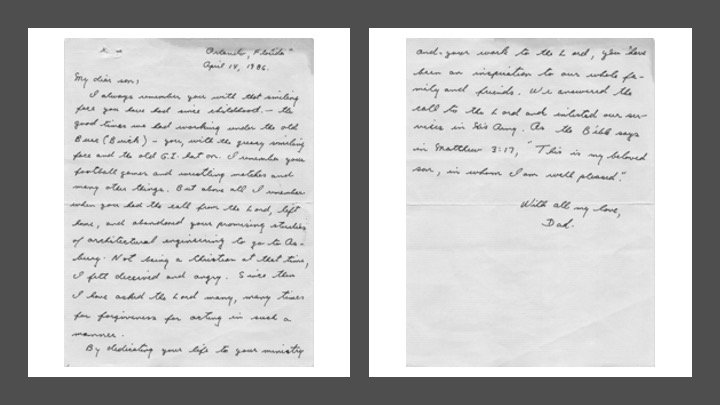 Orlando, Florida
April 14, 1986.
My dear son,
I always remember you with that smiling
face you have had since childhood. — the
good times we had working under the old
Buce (Buick) – you, with the greasy smiling
face and the old G.I. hat on. I remember your
football games and wrestling matches and
many other things. But above all I remember
when you had the call from the Lord, left
home, and abandoned your promising studies
of architectural engineering to go to As-
bury. Not being a Christian at that time,
I felt deceived and angry. Since then
I have asked the Lord many, many times
for forgiveness for acting in such a
manner.
By dedicating your life to your ministry
and your work to the Lord, you have
been an inspiration to our whole fa-
mily and friends. We answered the
call to the Lord and inlisted our ser-
vices in His Army. As the Bible says
in Matthew 3:17, "This is my beloved
son, in whom I am well pleased."
With all my love,
Dad.